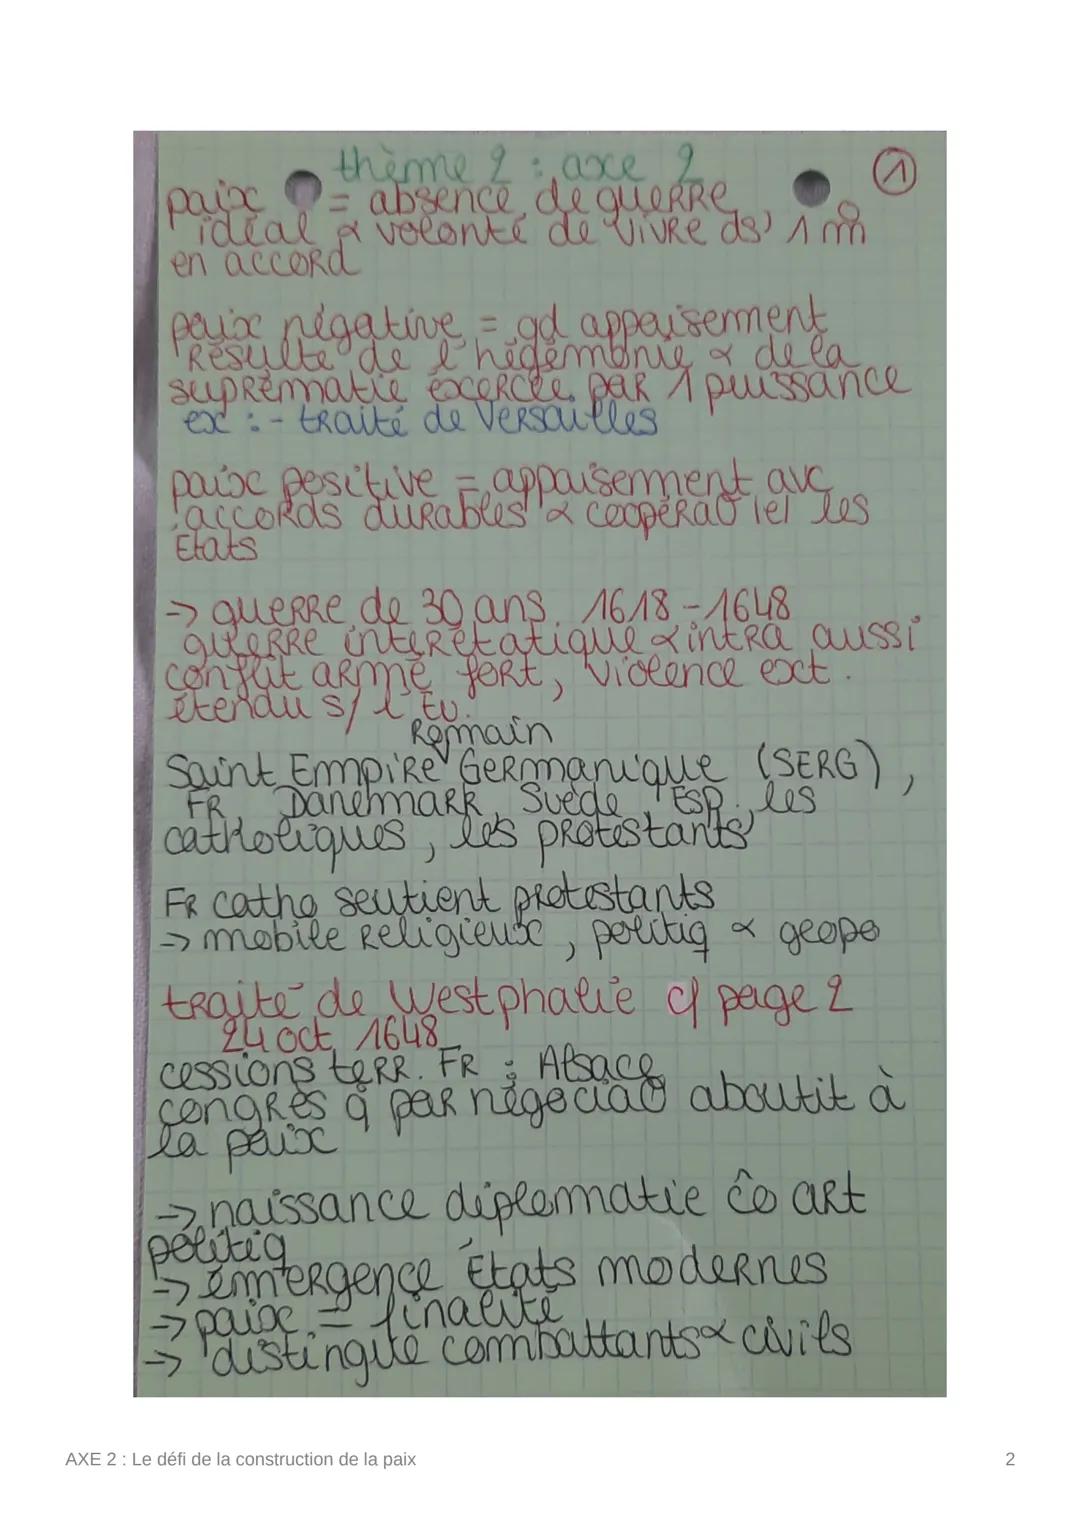 thème 2 : axe 2
1
paix = absence de guerre
idéal & volonté de vivre ds 1 m̊
en accord
paix négative = gd appaisement
Résulte de l'hégémonie & de la
suprématie exercée par 1 puissance
ex : - traité de Versailles
paix positive = appaisement avc
accords durables & coopérat° les
Etats
-> guerre de 30 ans 1618-1648
guerre interétatique & intra aussi
conflit armé fort, violence ext.
étendu s/ l'Eu.
Romain
Saint Empire Germanique (SERG),
FR, Danemark, Suède, ESP, les
catholiques, les protestants
FR catho soutient protestants
-> mobile religieux, politiq & geopo
traité de Westphalie cf page 2
24 oct 1648
cessions terr. FR : Alsace
congrès q par négociat° aboutit à
la paix
-> naissance diplomatie ĉo art
politiq
-> émergence États modernes
-> paix = finalité
-> distingue combattants & civils
AXE 2 : Le défi de la construction de la paix
2